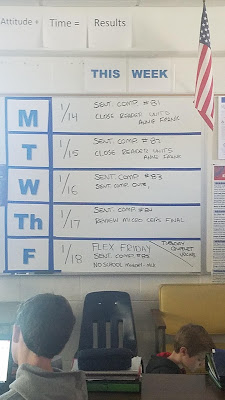 Attitude + Time = Results
THIS WEEK
M 1/14 SENT. COMP. #81
CLOSE READER UNIT 5
ANNE FRANK
T 1/15 SENT. COMP. #82
CLOSE READER UNIT 5
ANNE FRANK
W 1/16 SENT. COMP. #83
SENT. COMP. QUIZ
Th 1/17 SENT. COMP. #84
REVIEW MICRO CER'S FINAL
F 1/18 FLEX FRIDAY
SENT. COMP. #85
NO SCHOOL MONDAY - MLK
TUESDAY